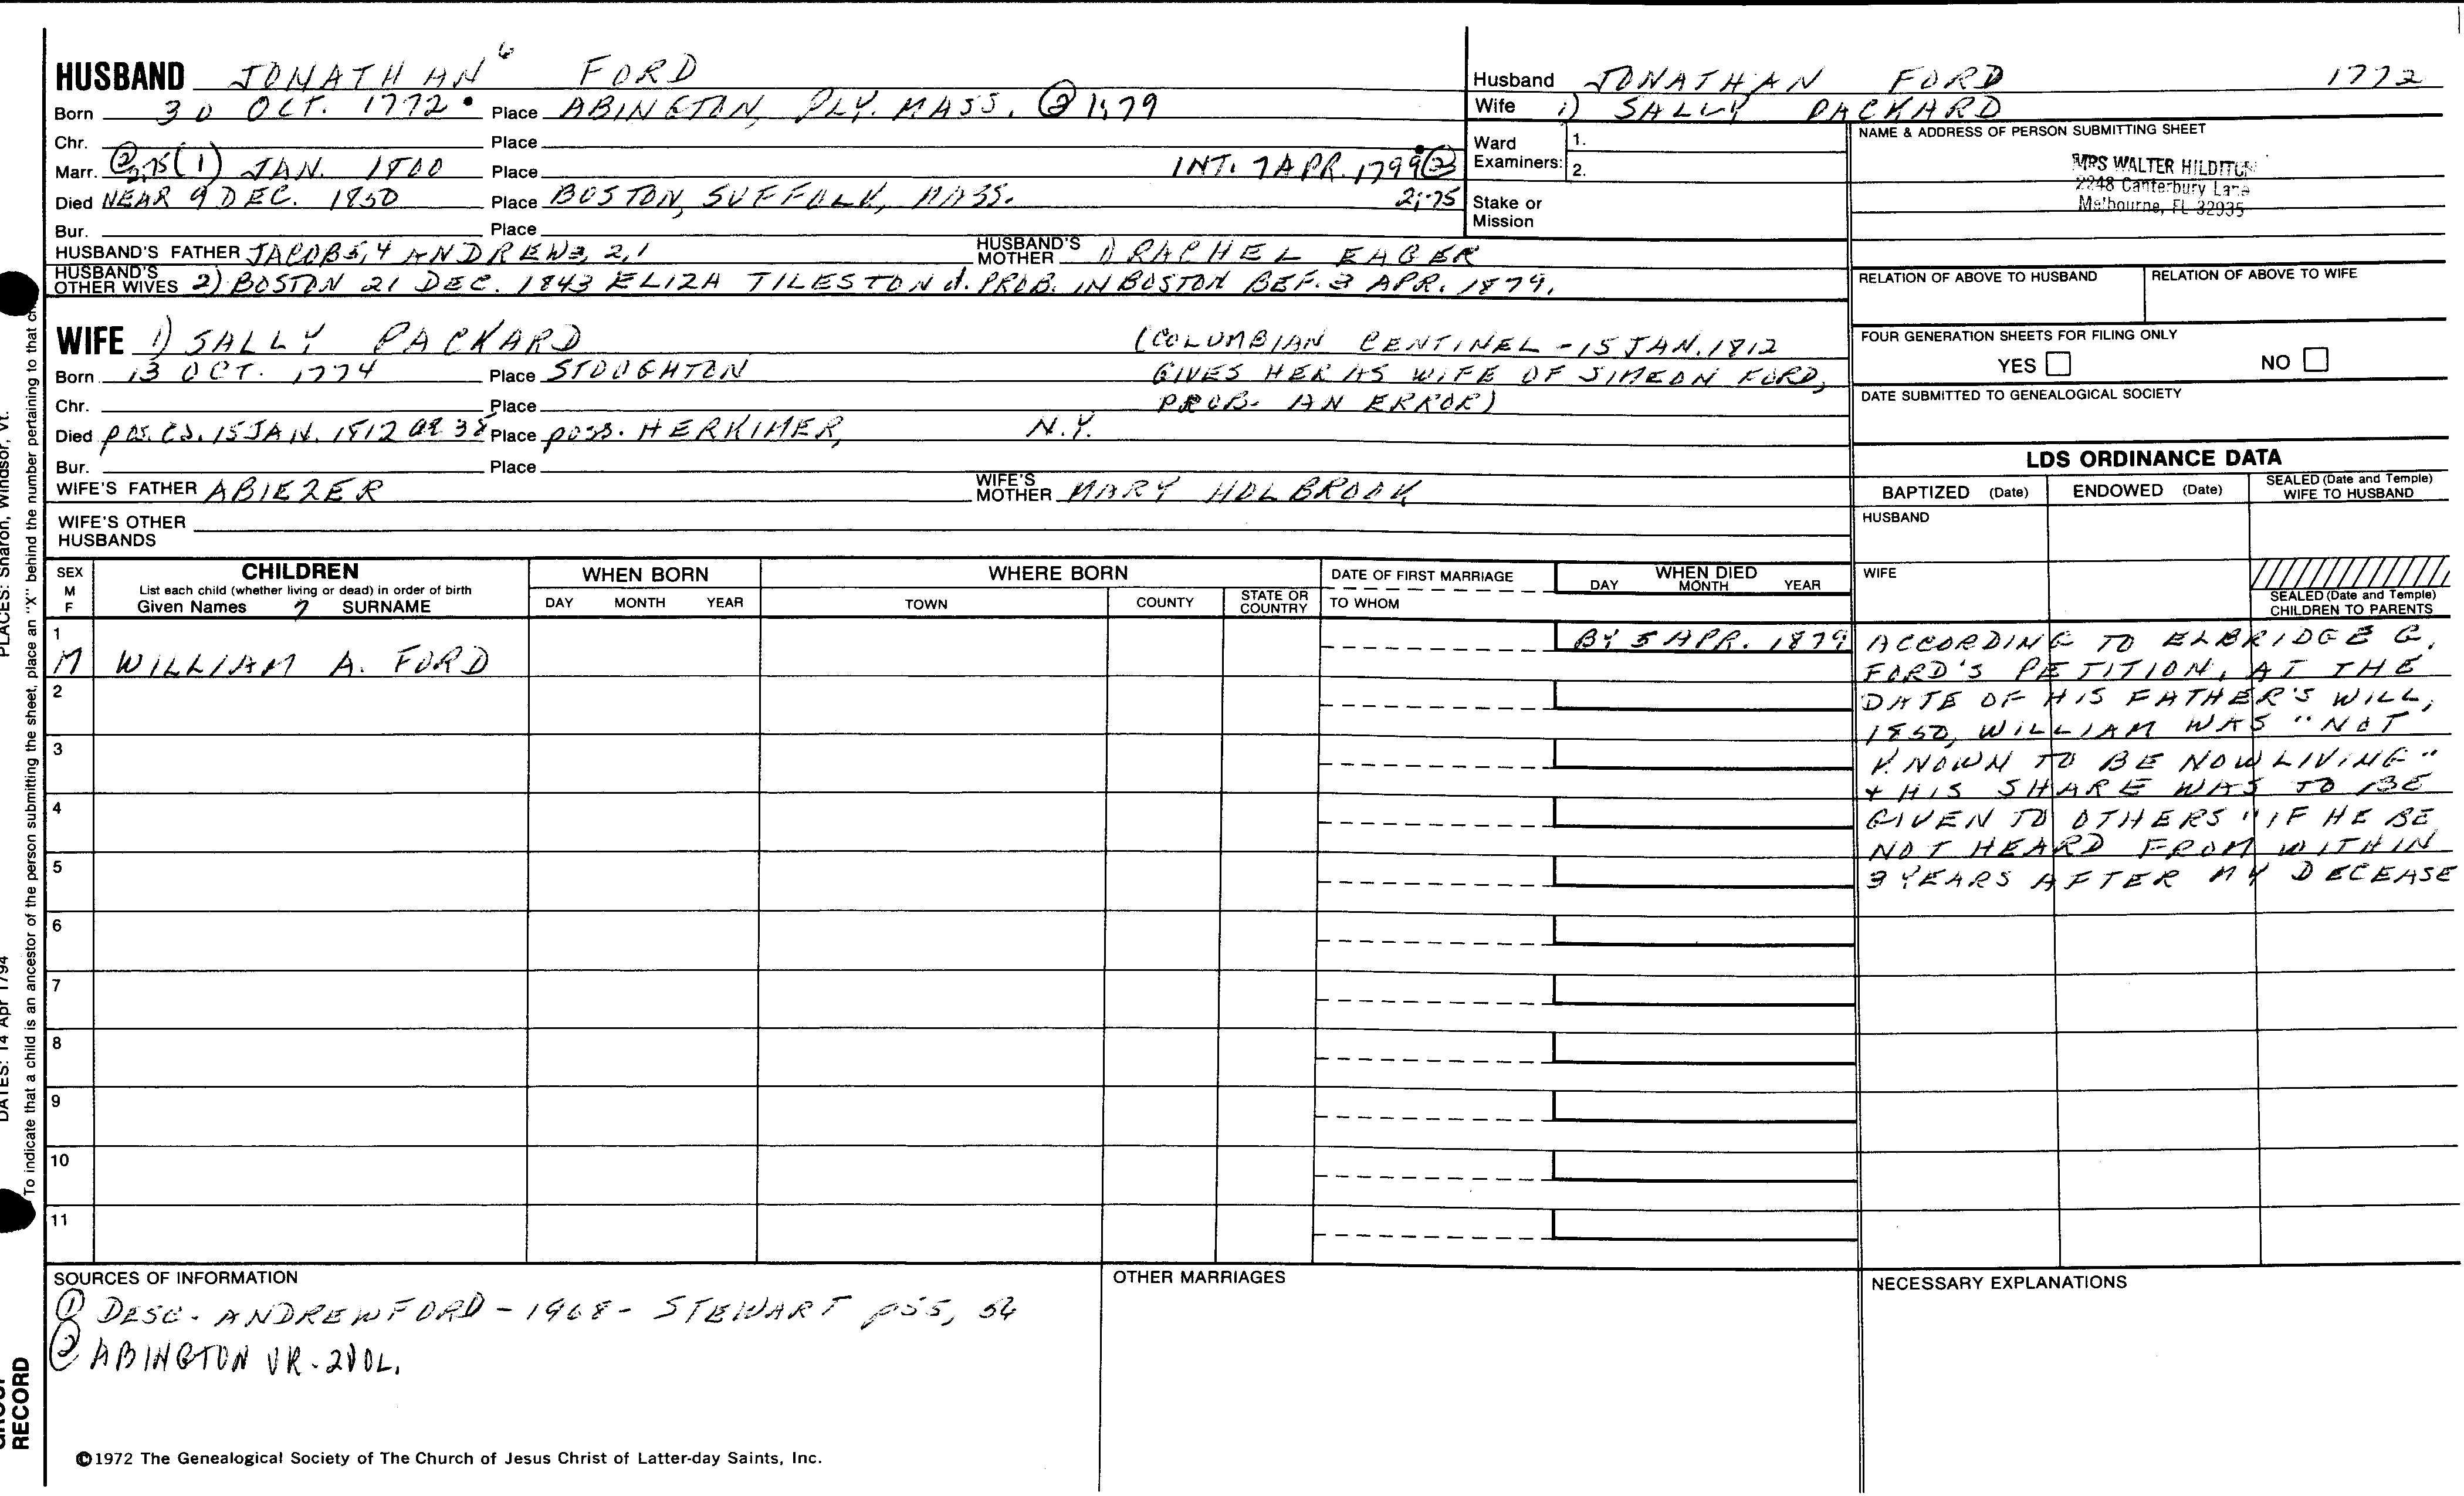 HUSBAND JONATHAN 6 FORD
Born 30 OCT. 1772 Place ABINGTON, PLY. MASS. ② 1;79
Chr. Place
Marr. ② 2;75 (1) JAN. 1800 Place INT. 7 APR. 1799 ②
Died NEAR 9 DEC. 1850 Place BOSTON, SUFFOLK, MASS. 2;75
Bur. Place
HUSBAND'S FATHER JACOB 5,4 ANDREW 3,2,1 HUSBAND'S MOTHER 1) RACHEL EAGER
HUSBAND'S OTHER WIVES 2) BOSTON 21 DEC. 1843 ELIZA TILESTON d. PROB. IN BOSTON BEF. 3 APR. 1879.
Husband JONATHAN FORD 1772
Wife 1) SALLY PACKARD
Ward Examiners: 1.
2.
Stake or Mission
NAME & ADDRESS OF PERSON SUBMITTING SHEET
MRS WALTER HILDITCH
2248 Canterbury Lane
Melbourne, FL 32935
RELATION OF ABOVE TO HUSBAND RELATION OF ABOVE TO WIFE
FOUR GENERATION SHEETS FOR FILING ONLY
YES NO
DATE SUBMITTED TO GENEALOGICAL SOCIETY
WIFE 1) SALLY PACKARD (COLUMBIAN CENTINEL - 15 JAN. 1812
Born 13 OCT. 1774 Place STOUGHTON GIVES HER AS WIFE OF SIMEON FORD,
Chr. Place PROB. AN ERROR)
Died pos. CS. 15 JAN. 1812 ae 38 Place poss. HERKIMER, N.Y.
Bur. Place
WIFE'S FATHER ABIEZER WIFE'S MOTHER MARY HOLBROOK
WIFE'S OTHER HUSBANDS
LDS ORDINANCE DATA
BAPTIZED (Date) ENDOWED (Date) SEALED (Date and Temple) WIFE TO HUSBAND
HUSBAND
WIFE
SEALED (Date and Temple) CHILDREN TO PARENTS
SEX M F
CHILDREN
List each child (whether living or dead) in order of birth
Given Names ? SURNAME
WHEN BORN
DAY MONTH YEAR
WHERE BORN
TOWN COUNTY STATE OR COUNTRY
DATE OF FIRST MARRIAGE
TO WHOM
WHEN DIED
DAY MONTH YEAR
1
M WILLIAM A. FORD BY 5 APR. 1879
ACCORDING TO ELBRIDGE G.
FORD'S PETITION, AT THE
DATE OF HIS FATHER'S WILL,
1850, WILLIAM WAS "NOT
KNOWN TO BE NOW LIVING"
+ HIS SHARE WAS TO BE
GIVEN TO OTHERS "IF HE BE
NOT HEARD FROM WITHIN
3 YEARS AFTER MY DECEASE
2
3
4
5
6
7
8
9
10
11
SOURCES OF INFORMATION
① DESC. ANDREW FORD - 1968 - STEWART p55, 56
② ABINGTON VR. 2VOL.
OTHER MARRIAGES
NECESSARY EXPLANATIONS
©1972 The Genealogical Society of The Church of Jesus Christ of Latter-day Saints, Inc.
PLACES: Sharon, Windsor, Vt.
DATES: 14 Apr 1794
To indicate that a child is an ancestor of the person submitting the sheet, place an "X" behind the number pertaining to that
GROUP RECORD